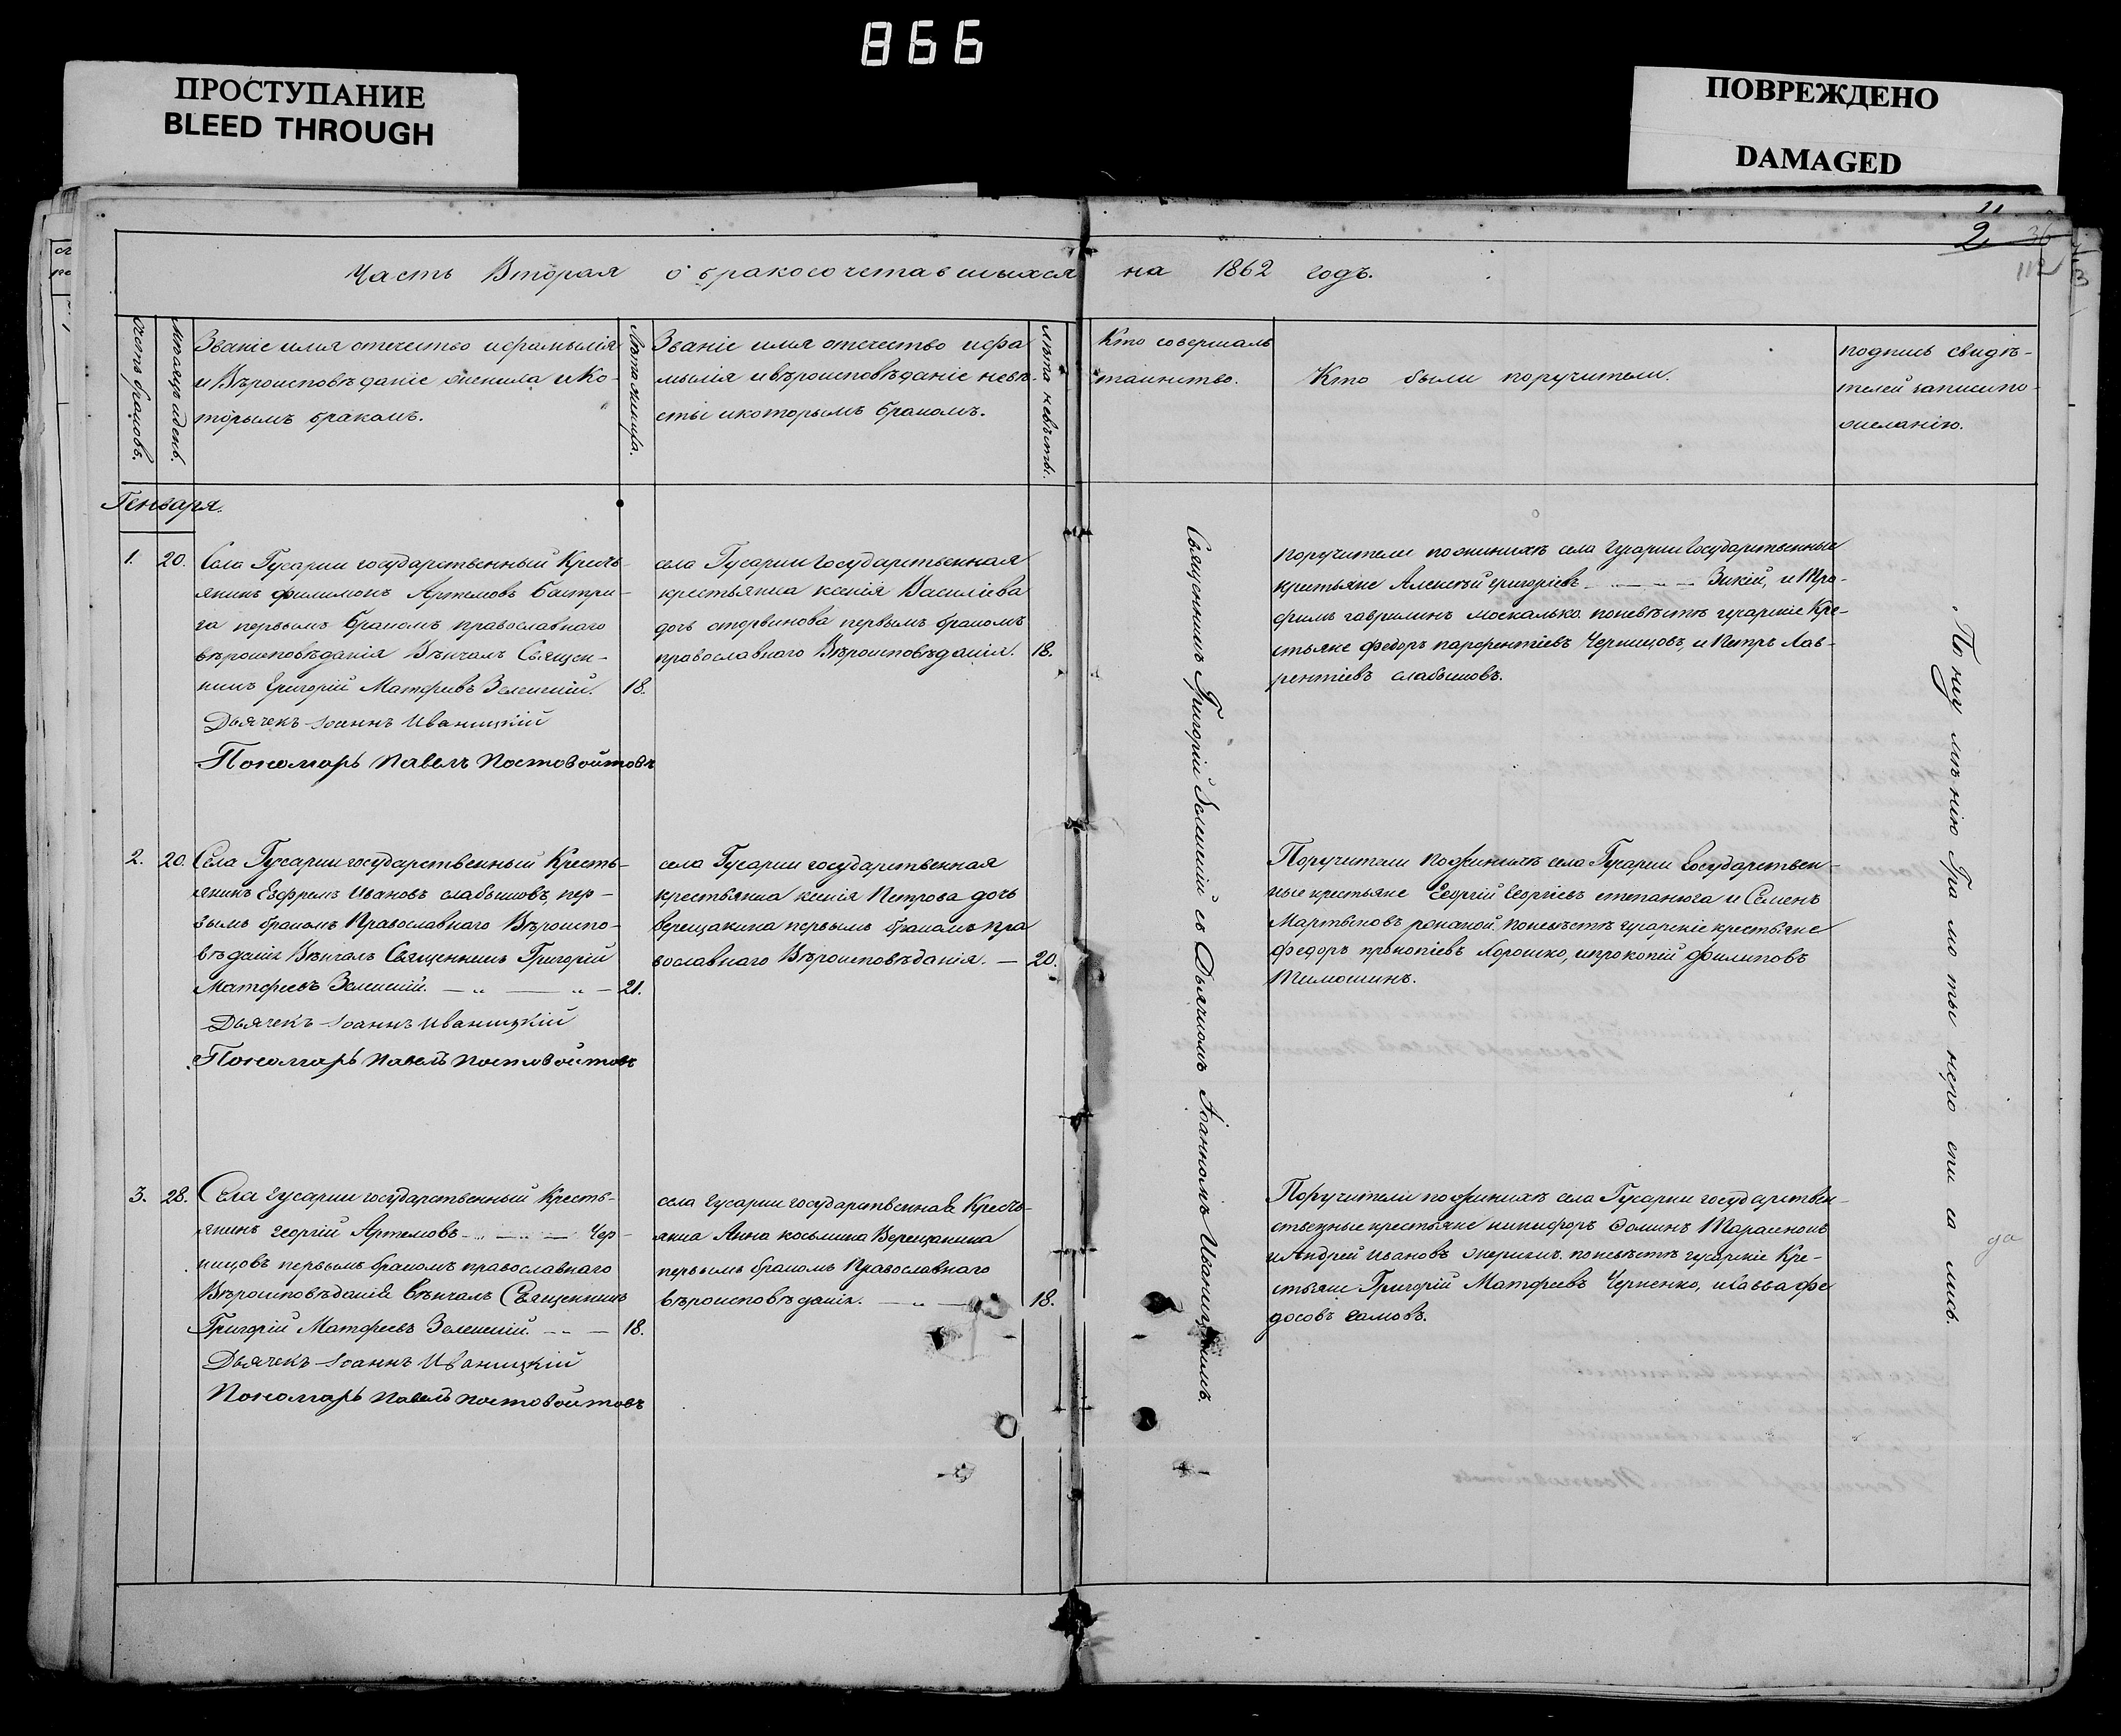 866
ПРОСТУПАНИЕ
BLEED THROUGH
ПОВРЕЖДЕНО
DAMAGED
11
2
36
112
Часть Вторая о бракосочетавшихся на 1862 годъ.
Счетъ браковъ.
Мѣсяцъ и день.
Званіе имя отечество и фамилія
и Вѣроисповѣданіе жениха и Ко-
торымъ бракомъ.
Лѣта жениха.
Званіе имя отечество и фа
милія и вѣроисповѣданіе невѣ-
сты и которымъ бракомъ.
Лѣта невѣсты.
Кто совершалъ
таинство.
Кто были поручители.
подпись свидѣ-
телей записи по
желанію.
Генваря.
1. 20. Села Гусарки государственный Кресть-
янинъ Филимонъ Артемовъ
первымъ бракомъ православнаго
вѣроисповѣданія Вѣнчалъ Священ-
никъ Григорій Матфеевъ Зеленскій. 18.
Дьячекъ Іоаннъ Иваницкій
Пономарь Павелъ Постовойтовъ
села Гусарки Государственная
крестьянка ксенія Василіева
дочь первымъ бракомъ
православнаго Вѣроисповѣданія. 18.
поручители по женихѣ села Гусарки Государственные
крестьяне Алексѣй григоріевъ Зикій, и Тро-
фимъ гавриловъ москалько. по невѣстѣ гусарскіе Кре-
стьяне Федоръ парфентіевъ Чернецовъ, и Петръ Лав-
рентіевъ слабышовъ.
2. 20. Села Гусарки государственный Кресть-
янинъ Евфремъ Ивановъ слабышовъ, пер-
вымъ бракомъ Православнаго Вѣроиспо-
вѣданія Вѣнчалъ Священникъ Григорій
Матфеевъ Зеленскій. 21.
Дьячекъ Іоаннъ Иваницкій
Пономарь Павелъ Постовойтовъ
села Гусарки государственная
крестьянка ксенія Петрова дочь
Верещакина первымъ бракомъ пра
вославнаго Вѣроисповѣданія. 20.
Поручители по женихѣ села Гусарки Государствен-
ные крестьяне Георгій Георгіевъ степанюга и Семенъ
Мартыновъ по невѣстѣ гусарскіе крестьяне
Федоръ прокопіевъ Хорошко, и прокопій Филиповъ
Тимошинъ.
3. 28. Села Гусарки государственный Кресть-
янинъ георгій Артемовъ Чер-
нцовъ первымъ бракомъ православнаго
Вѣроисповѣданія Вѣнчалъ Священникъ
Григорій Матфеевъ Зеленскій. 18.
Дьячекъ Іоаннъ Иваницкій
Пономарь Павелъ Постовойтовъ
села Гусарки государственная Кресть-
янка Анна косьмина Верещакина
первымъ бракомъ Православнаго
вѣроисповѣданія. 18.
Поручители по женихѣ села Гусарки государствен-
ственные крестьяне никифоръ
и Андрей Ивановъ по невѣстѣ гусарскіе Кре-
стьяне Григорій Матфеевъ Черненко, и Савва Фе
досовъ
Священникъ Григорій Зеленскій съ Дьячкомъ Іоанномъ Иваницкимъ.
По не умѣнію Грамоты не росписались.